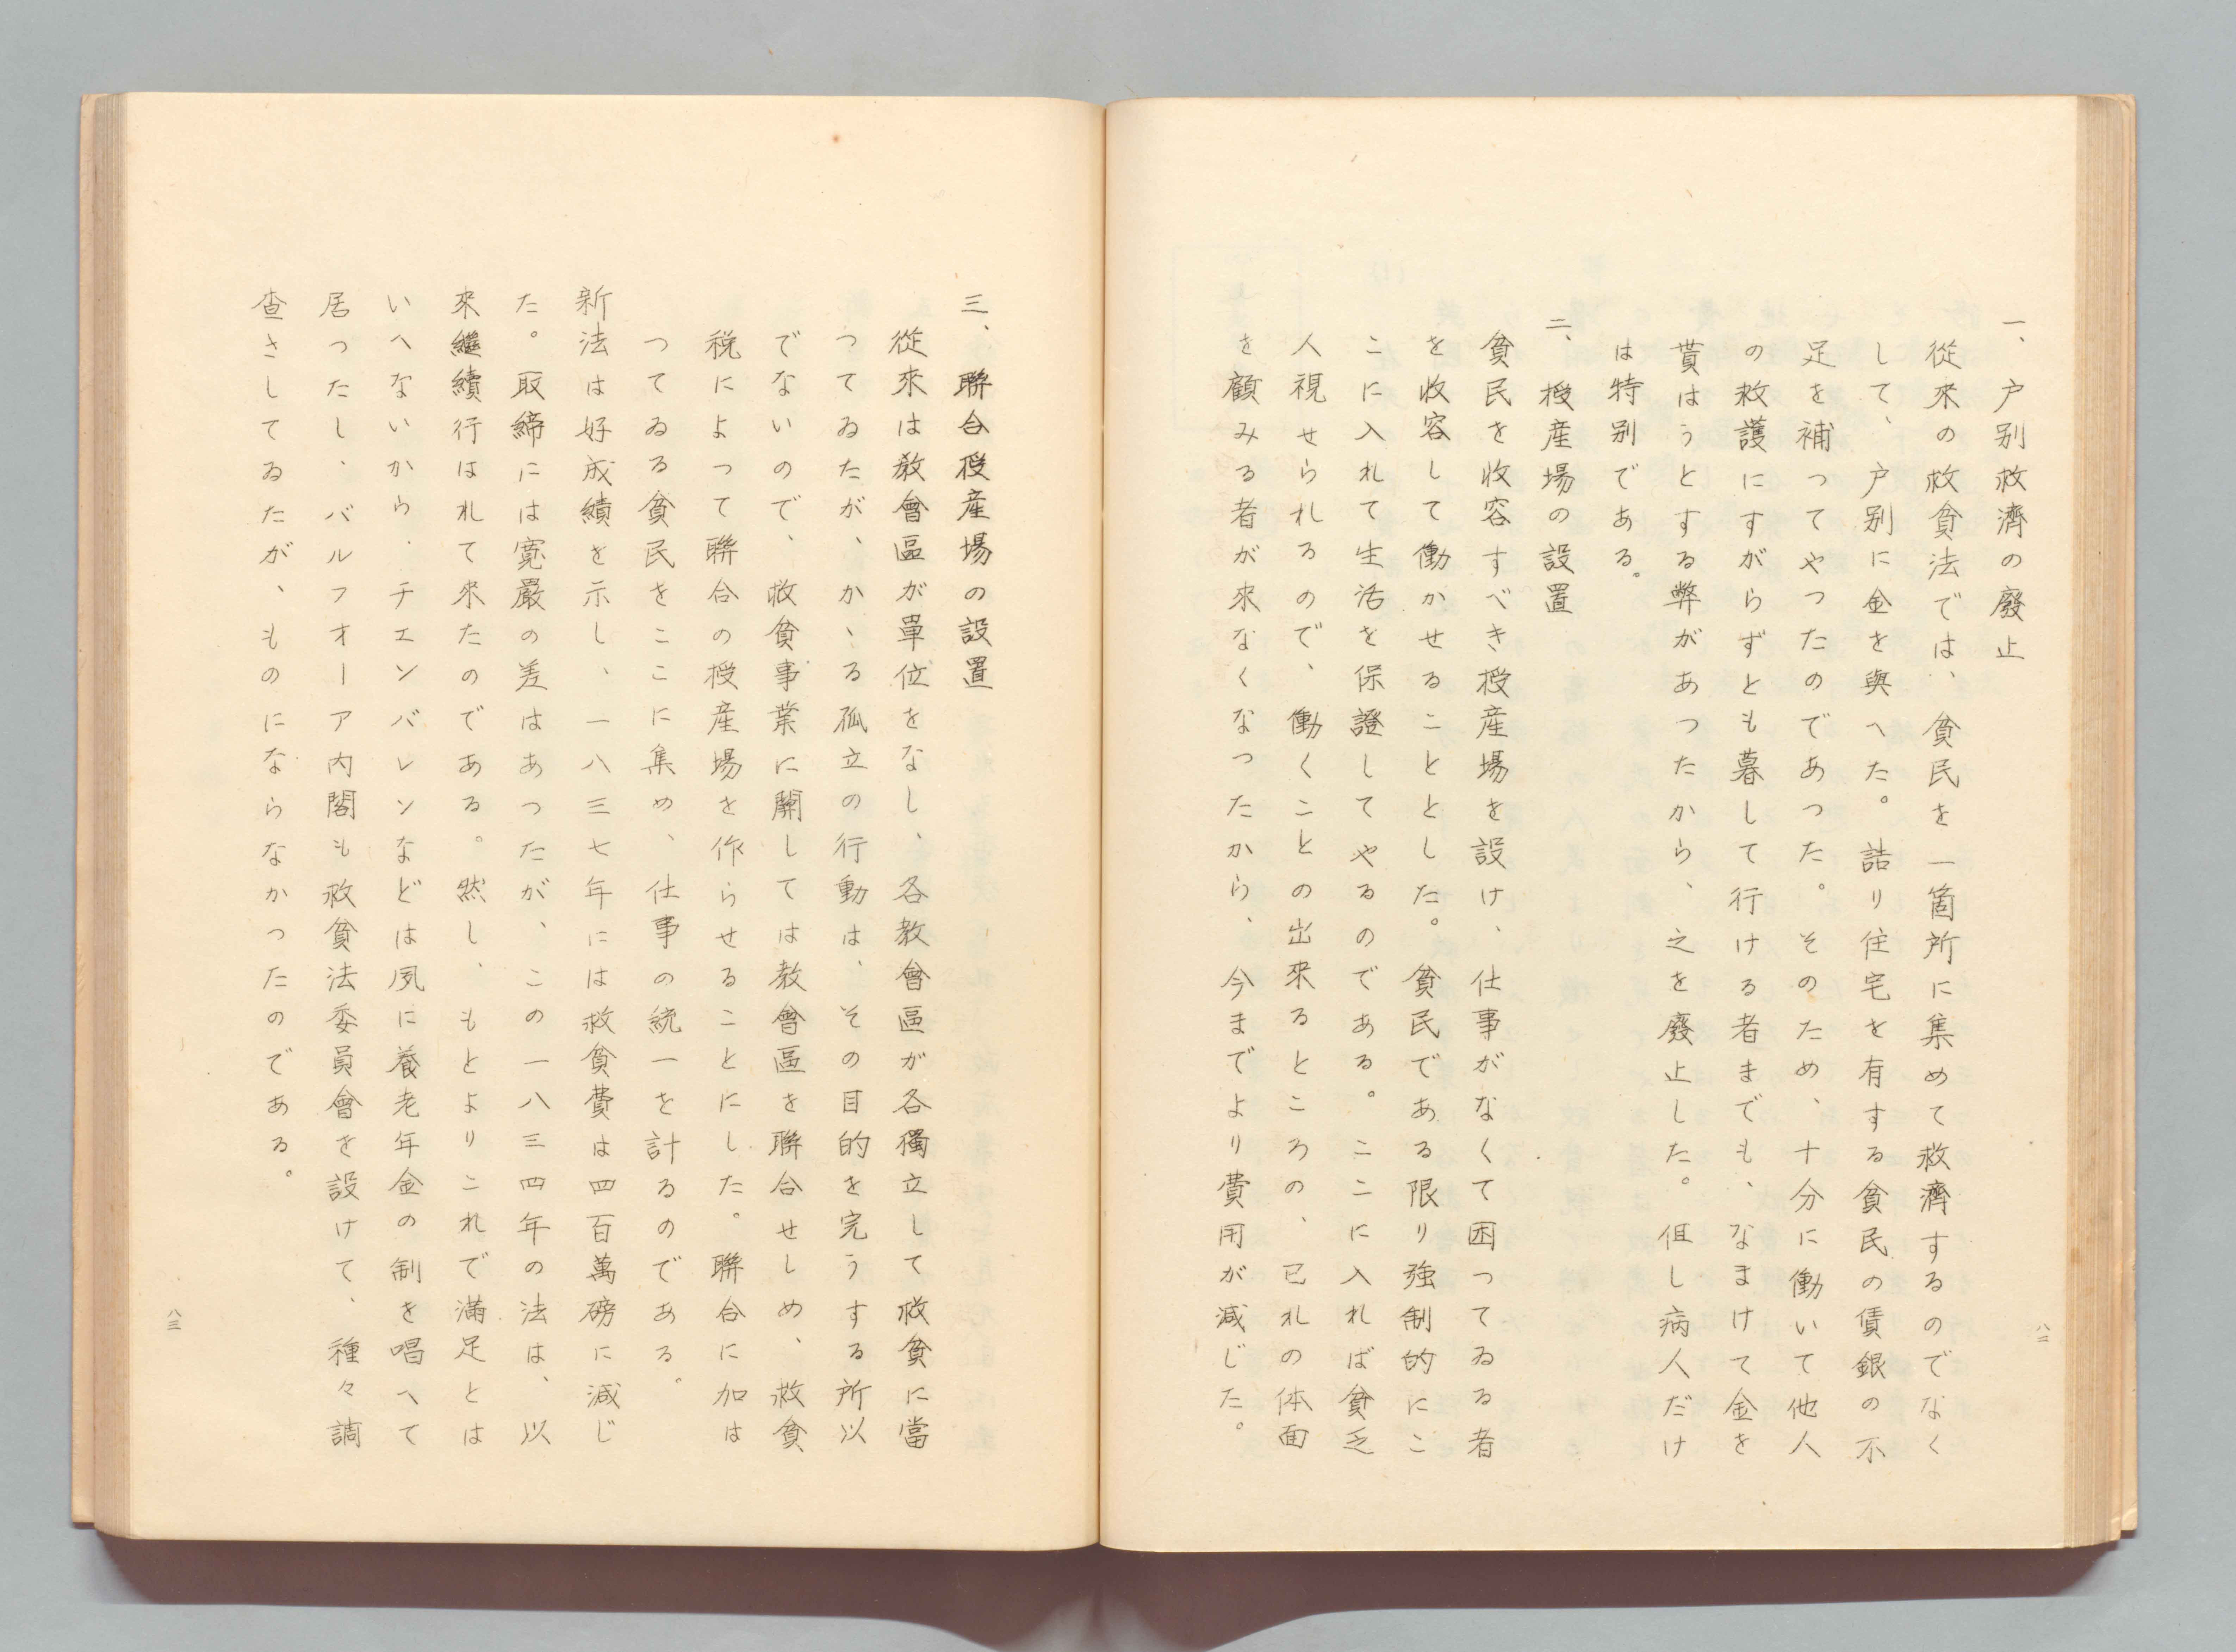 一、戸別救濟の廢止
從来の救貧法では、貧民を一箇所に集めて救濟するのでなく
して、戸別に金を與へた。詰り住宅を有する貧民の賃銀の不
足を補ってやったのであった。そのため、十分に働いて他人
の救護にすがらずとも暮して行ける者までも、なまけて金を
貰はうとする弊があったから、之を廢止した。但し病人だけ
は特別である。
二、授産場の設置
貧民を收容すべき授産場を設け、仕事がなくて困ってゐる者
を收容して働かせることとした。貧民である限り強制的にこ
こに入れて生活を保證してやるのである。ここに入れば貧乏
人視せられるので、働くことの出来るところの、已れの体面
を顧みる者が来なくなったから、今までより費用が減じた。
八二
三、聯合授産場の設置
從來は教會區が單位をなし、各教會區が各獨立して救貧に當
ってゐたが、かゝる孤立の行動は、その目的を完うする所以
でないので、救貧事業に關しては教會區を聯合せしめ、救貧
税によって聯合の授産場を作らせることにした。聯合に加は
ってゐる貧民をここに集め、仕事の統一を計るのである。
新法は好成績を示し、一八三七年には救貧費は四百萬磅に減じ
た。取締には寛嚴の差はあったが、この一八三四年の法は、以
來繼續行はれて來たのである。然し、もとよりこれで滿足とは
いへないから、チエンバレンなどは夙に養老年金の制を唱へて
居ったし、バルフオーア内閣も救貧法委員會を設けて、種々調
査さしてゐたが、ものにならなかったのである。
八三